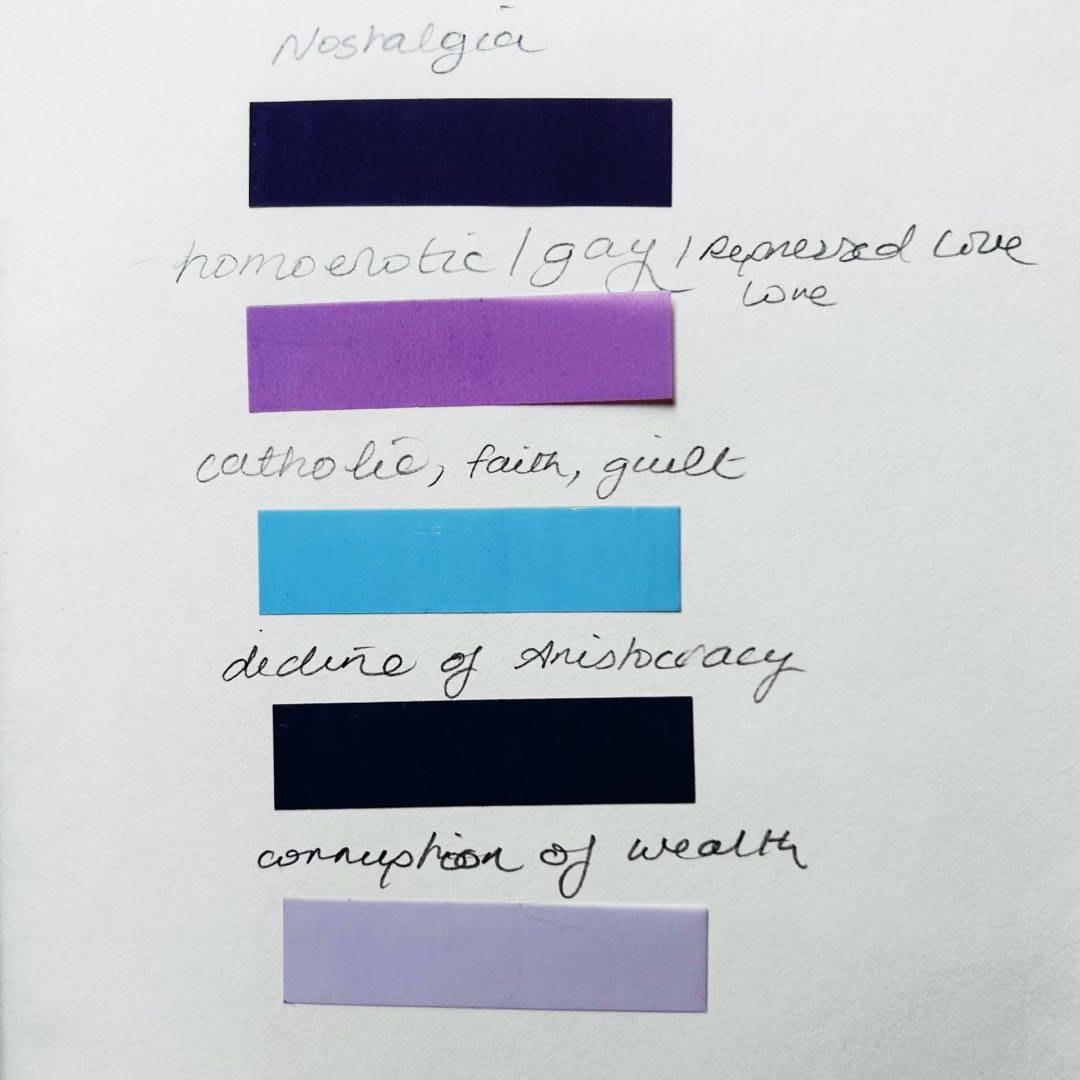 Nostalgia
homoerotic / gay / Repressed love
love
catholic, faith, guilt
decline of Aristocracy
corruption of wealth